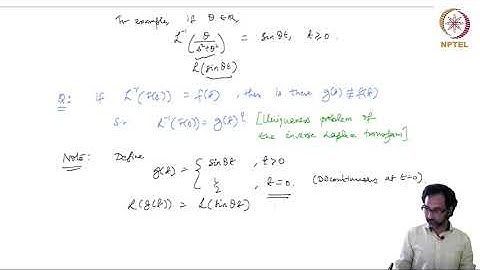 For example, if θ ∈ ℝ,
L⁻¹(θ/(s²+θ²)) = sin θt, t ≥ 0.
L(sin θt)
NPTEL
Q: if L⁻¹(F(s)) = f(t), then is there g(t) ≢ f(t)
s.t. L⁻¹(F(s)) = g(t)? [Uniqueness problem of
the inverse Laplace transform]
Note: Define
g(t) = { sin θt, t > 0
, t = 0. (Discontinuous at t=0)
L(g(t)) = L(sin θt)